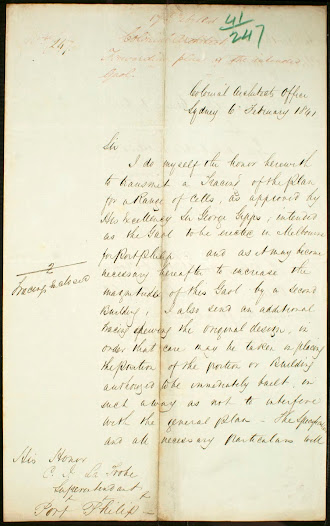 41/247
247
Colonial Architect
Forwarding plan of the intended
Gaol.
Colonial Architects Office
Sydney 6 February 1841
Sir
I do myself the honor herewith
to transmit a Tracing of the Plan
for a Range of Cells, as approved by
His Excellency Sir George Gipps, intended
as the Gaol to be erected in Melbourne
for Port Philip. and as it may become
necessary hereafter to increase the
magnitude of this Gaol by a second
Building, I also send an additional
tracing shewing the original design, in
order that care may be taken in placing
the position of the portion or Building
authorized to be immediately built, in
such a way as not to interfere
with the general plan - The Specification
and all necessary particulars will
2
Tracings enclosed
His Honor
C. J. La Trobe
Superintendant
Port Philip